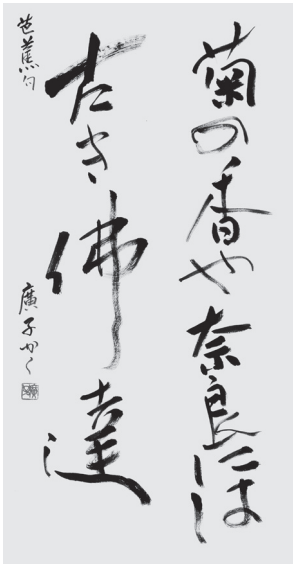 菊の香や奈良には
古き佛達
芭蕉句
廣子かく